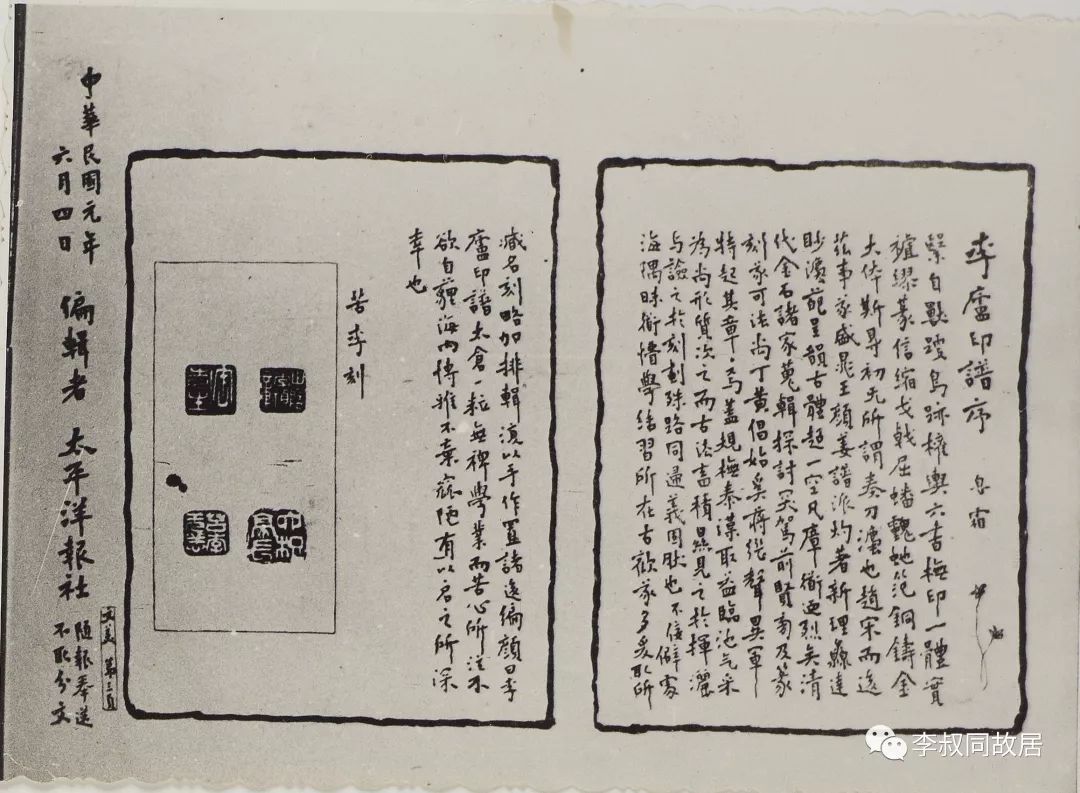 李廬印譜序 息霜
繄自獸蹏鳥跡權輿六書橅印一體實
繆篆信縮戈戟屈蟠龍蛇笵銅鑄金
大体斯㝵初无所謂奏刀灋也趙宋而後
茲事遂盛晁王顏姜譜派灼著新理達
眇灋葩呈韻古體超一空凡障衜迺烈矣清
代金石諸家蒐輯探討突駕前賢旁及篆
刻遂可法尚丁黃倡始奚蔣繼聲異軍
特起其章章焉蓋規橅秦漢取益臨池气采
為尚形質次之而古法畜積㬎見之於揮灑
与諗之於刻劃殊路同歸義固肰也不佞僻處
海隅昧衜懵學結習所在古歡遂多爰取所
臧名刻略加排輯復以手作置諸後編顏曰李
廬印譜太倉一粒無裨學業而苦心所注不
欲自薶海内博雅不棄窳陋有以启之所深
幸也
苦李刻
中華民國元年
六月四日
編輯者 太平洋報社
文美 第三頁
隨報奉送
不取分文
李叔同故居